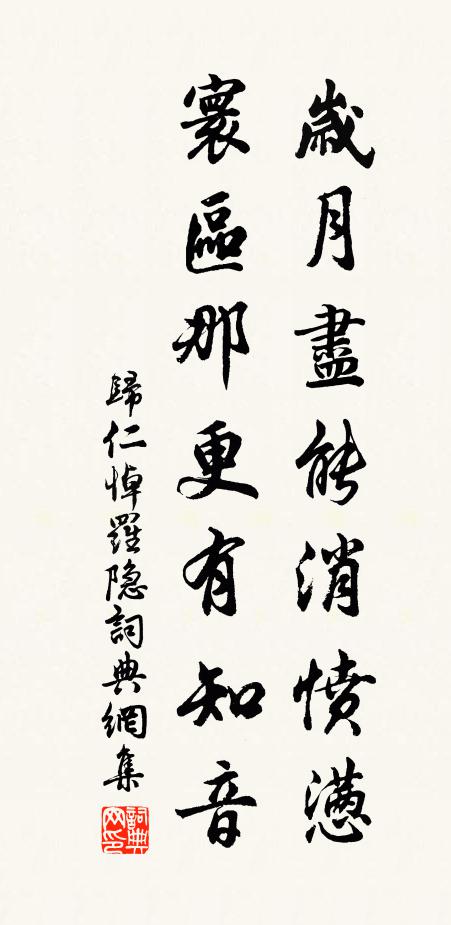 歲月盡能消憤懣
寰區那更有知音
歸仁悼羅隐詞典網集
詞典网印